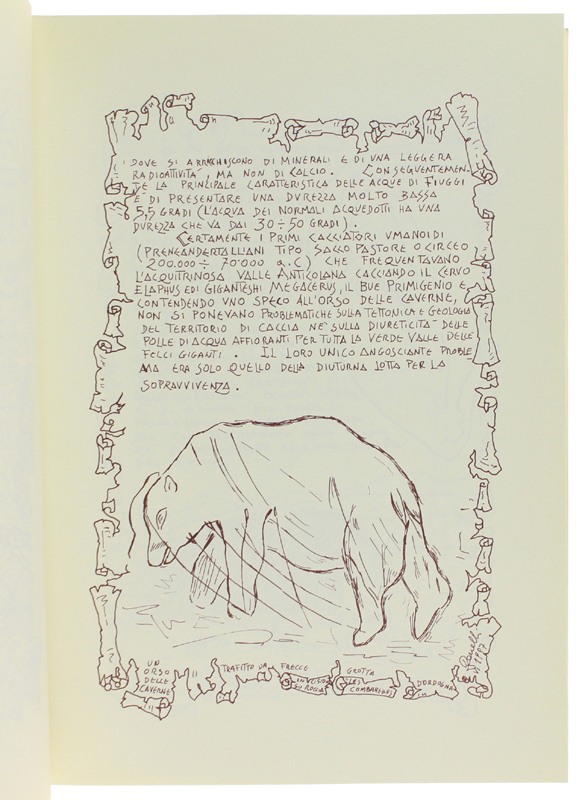 DOVE SI ARRICHISCONO DI MINERALI E DI UNA LEGGERA
RADIOATTIVITA', MA NON DI CALCIO. CONSEGUENTEMEN-
TE LA PRINCIPALE CARATTERISTICA DELLE ACQUE DI FIUGGI
E' DI PRESENTARE UNA DUREZZA MOLTO BASSA
5,5 GRADI (L'ACQUA DEI NORMALI ACQUEDOTTI HA UNA
DUREZZA CHE VA DAI 30÷50 GRADI).
CERTAMENTE I PRIMI CACCIATORI UMANOIDI
(PRENEANDERTALLIANI TIPO SACCO PASTORE O CIRCEO
200.000÷70'000 a.C) CHE FREQUENTAVANO
L'ACQUITRINOSA VALLE ANTICOLANA CACCIANDO IL CERVO
ELAPHUS ED I GIGANTESHI MEGACERUS, IL BUE PRIMIGENIO E
CONTENDENDO UNO SPECO ALL'ORSO DELLE CAVERNE,
NON SI PONEVANO PROBLEMATICHE SULLA TETTONICA E GEOLOGIA
DEL TERRITORIO DI CACCIA NE' SULLA DIURETICITA' DELLE
POLLE DI ACQUA AFFIORANTI PER TUTTA LA VERDE VALLE DELLE
FELCI GIGANTI. IL LORO UNICO ANGOSCIANTE PROBLE
MA ERA SOLO QUELLO DELLA DIUTURNA LOTTA PER LA
SOPRAVVIVENZA.
UN ORSO DELLE CAVERNE
TRAFITTO DA FRECCE
INCISIONE SU ROCCIA
GROTTA
LES COMBARELLES
DORDOGNA
1987